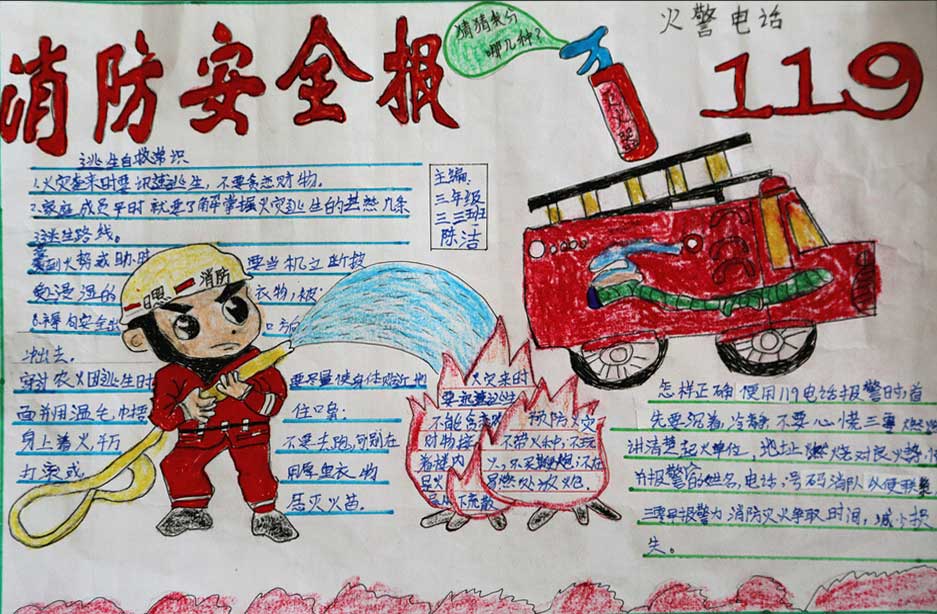 消防安全报
猜猜我分
哪几种?
灭火器
火警电话
119
逃生自救常识
1.火灾袭来时要迅速逃生,不要贪恋财物。
2.家庭成员平时就要了解掌握火灾逃生的基然几条
逃生路线。
到火势或
要当机立断披
浸湿的
衣物,被
向安全出
口方向
冲出去。
穿过农火因逃生时
要尽量使身体贴近地
面并用湿毛巾捂
住口鼻
身上着火千万
不要去跑,可别在
打滚或
用厚重衣物
压灭火苗.
消防
主编:
三年级
三三班
陈洁
火灾来时
要迅速逃生
不能贪恋财
对物
楼内
预防火灾
不带火种,不玩
火,不买鞭炮:不在
易燃处放火炮.
怎样正确使用119电话报警时,首
先要沉着,冷静不要心慌三要
讲清楚起火单位,地址燃烧对民火势
并报警的姓名,电话,号码消队以便联系
三要早报警为消防灭火争取时间,减少损
失。